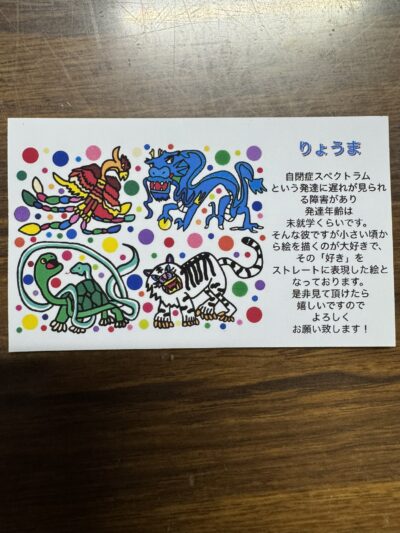 りょうま
自閉症スペクトラム
という発達に遅れが見られ
る障害があり
発達年齢は
未就学くらいです。
そんな彼ですが小さい頃か
ら絵を描くのが大好きで、
その「好き」を
ストレートに表現した絵と
なっております。
是非見て頂けたら
嬉しいですので
よろしく
お願い致します！